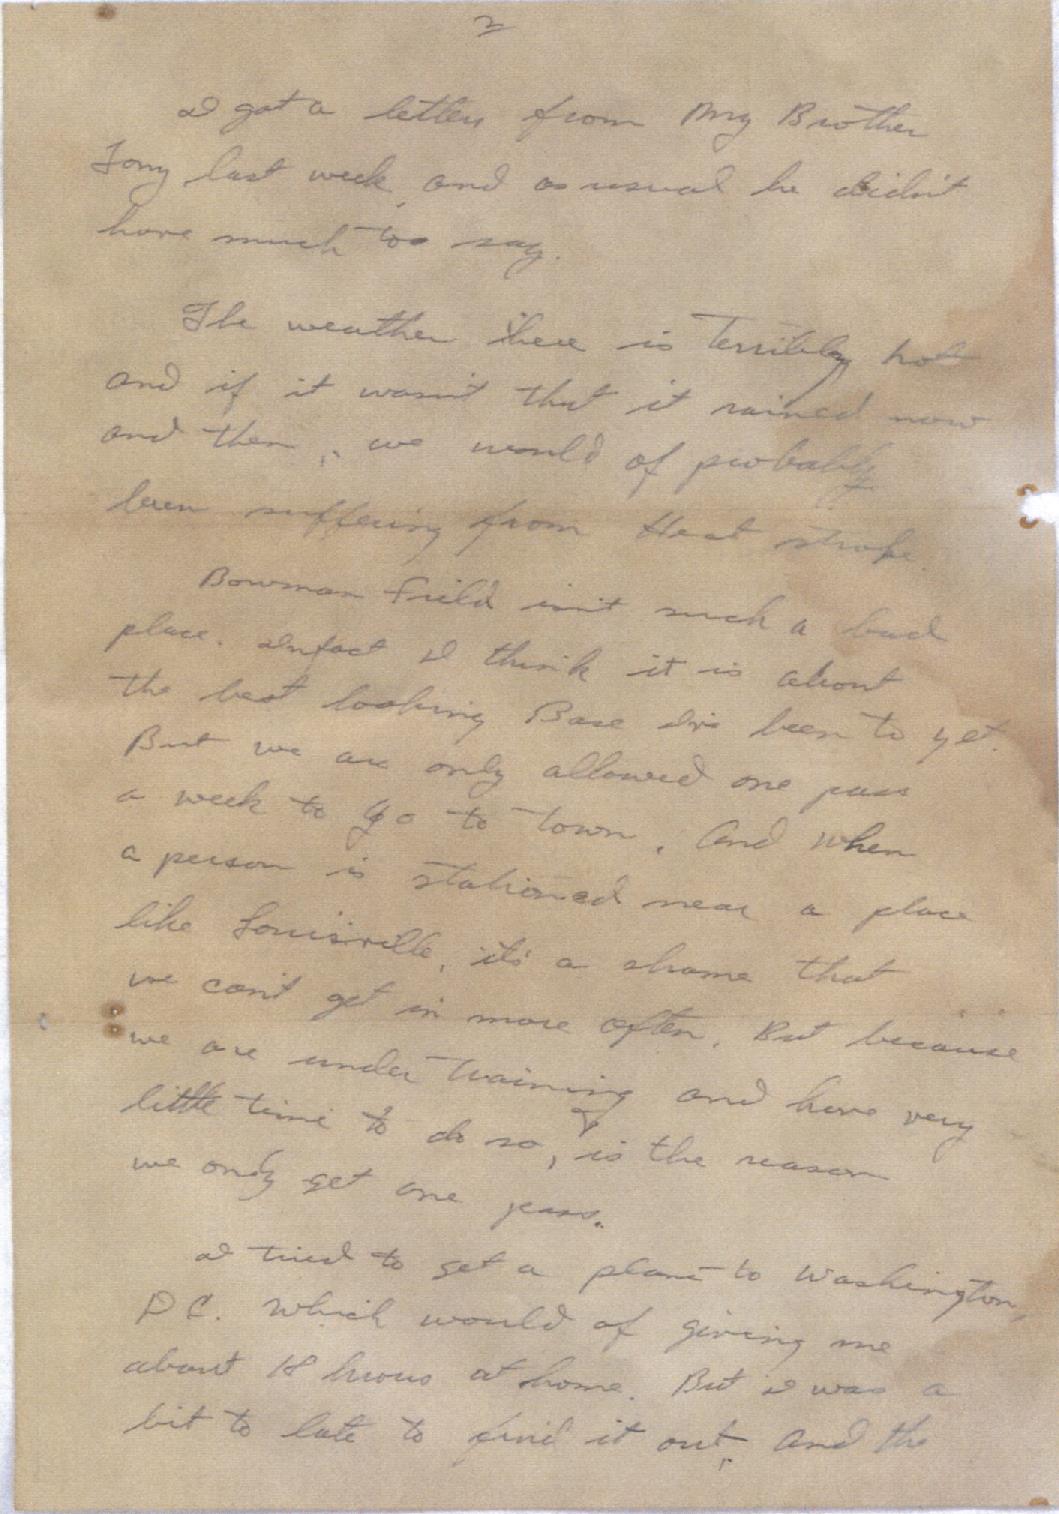 2
I got a letter from My Brother
Tony last week, and as usual he didn't
have much too say.
The weather here is Terribly hot
and if it wasn't that it rained now
and then, we would of probably
been suffering from Heat stroke.
Bowman Field isn't such a bad
place. Infact I think it is about
the best looking Base I've been to yet.
But we are only allowed one pass
a week to go to town. And when
a person is stationed near a place
like Louisville, it's a shame that
we can't get in more often. But because
we are under training and have very
little time to do so, is the reason
we only get one pass.
I tried to get a plane to Washington,
D.C. which would of giving me
about 18 hours at home. But I was a
bit to late to find it out, and the